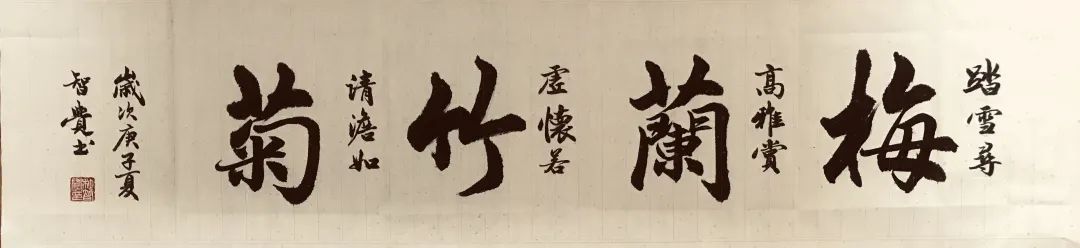 踏雪尋
梅
高雅赏
蘭
虚懷若
竹
清澹如
菊
歲次庚子夏
智覺书